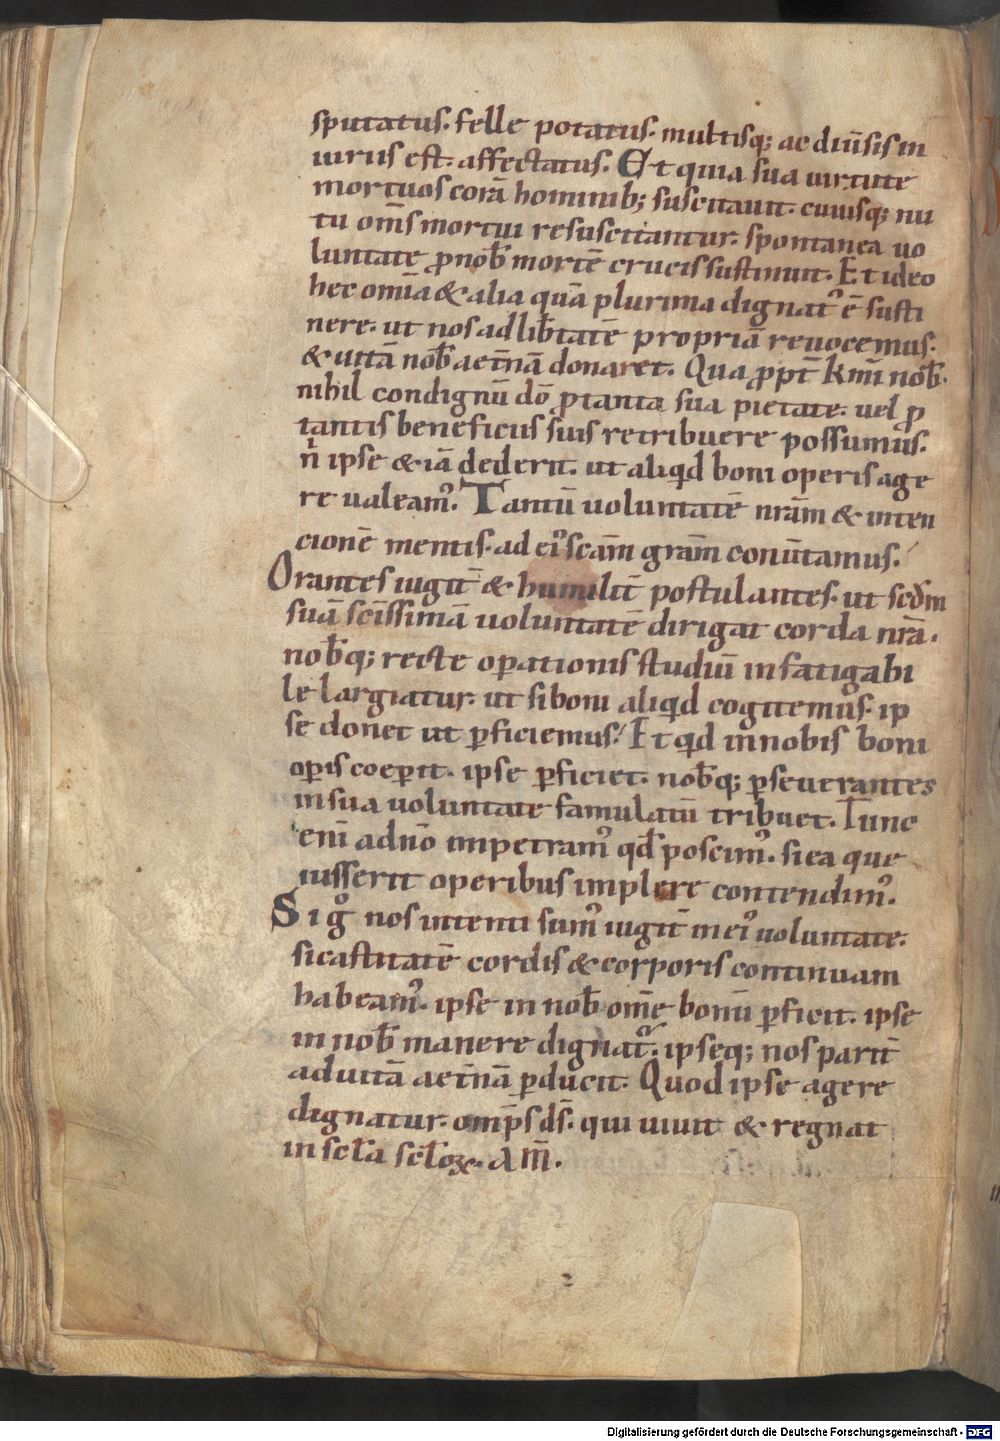 sputatus. felle potatus. multisq; ac diūsis in
iuriis est. affectatus. Et quia sua uirtute
mortuos corā hominib; suscitauit. cuiusq; nu
tu om̄s mortui resuscitantur. spontanea uo
luntate ꝓ nob̄ mortē crucis sustinuit. Et ideo
hec omīa & alia quā plurima dignatꝰ ē susti
nere. ut nos ad lib̄tatē propriā reuocemus.
& uitā nob̄ aet̄nā donaret. Qua ꝓpt̄ kmī nob̄.
nihil condignū dō ꝓ tanta sua pietate. uel ꝓ
tantis beneficiis suis retribuere possumus.
n̄ ipse & iā dederit. ut aliqid boni operis age
re ualeamꝰ. Tantū uoluntatē nrām & inten
cionē mentis. ad eiꝰ scām grām conūtamus.
Orantes iugit̄ & humilit̄ postulantes. ut scdm
suā scīssimā uoluntatē dirigat corda nrā.
nob̄q; recte oꝑationis studiū infatigabi
le largiatur. ut si boni aliqid cogitemus. ip
se donet ut ꝑficiemus. Et qid in nobis boni
oꝑis coeꝑit. ipse ꝑficiet. nob̄q; ꝑseuerantes
in sua uoluntate famulatū tribuet. Tunc
enī ad nō impetramꝰ qd̄ poscimꝰ. si ea que
iusserit operibus implere contendimꝰ.
Si gͦ nos intenti sumꝰ iugit̄ in eiꝰ uoluntate.
si castitatē cordis & corporis continuam
habeamꝰ. ipse in nob̄ om̄e bonū ꝑficit. ipse
in nob̄ manere dignat᷑. ipseq; nos parit̄
ad uitā aet̄nā ꝑducit. Quod ipse agere
dignatur. omp̄s d̄s. qui uiuit & regnat
in scl̄a scl̄oꝝ. Am̄.
Digitalisierung gefördert durch die Deutsche Forschungsgemeinschaft - DFG